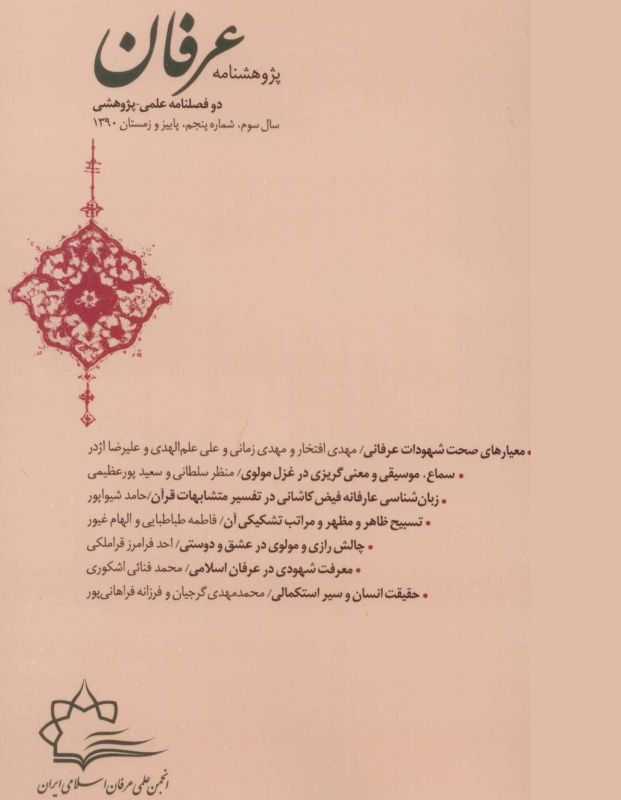 پژوهشنامه عرفان
دو فصلنامه علمی-پژوهشی
سال سوم، شماره پنجم، پاییز و زمستان ۱۳۹۰
• معیارهای صحت شهودات عرفانی/ مهدی افتخار و مهدی زمانی و علی علم‌الهدی و علیرضا اژدر
• سماع، موسیقی و معنی‌گریزی در غزل مولوی/ منظر سلطانی و سعید پورعظیمی
• زبان‌شناسی عارفانه فیض کاشانی در تفسیر متشابهات قرآن/حامد شیواپور
• تسبیح ظاهر و مظهر و مراتب تشکیکی آن/ فاطمه طباطبایی و الهام غیور
• چالش رازی و مولوی در عشق و دوستی/ احد فرامرز قراملکی
• معرفت شهودی در عرفان اسلامی/ محمد فنائی اشکوری
• حقیقت انسان و سیر استکمالی/ محمدمهدی گرجیان و فرزانه فراهانی‌پور
انجمن علمی عرفان اسلامی ایران